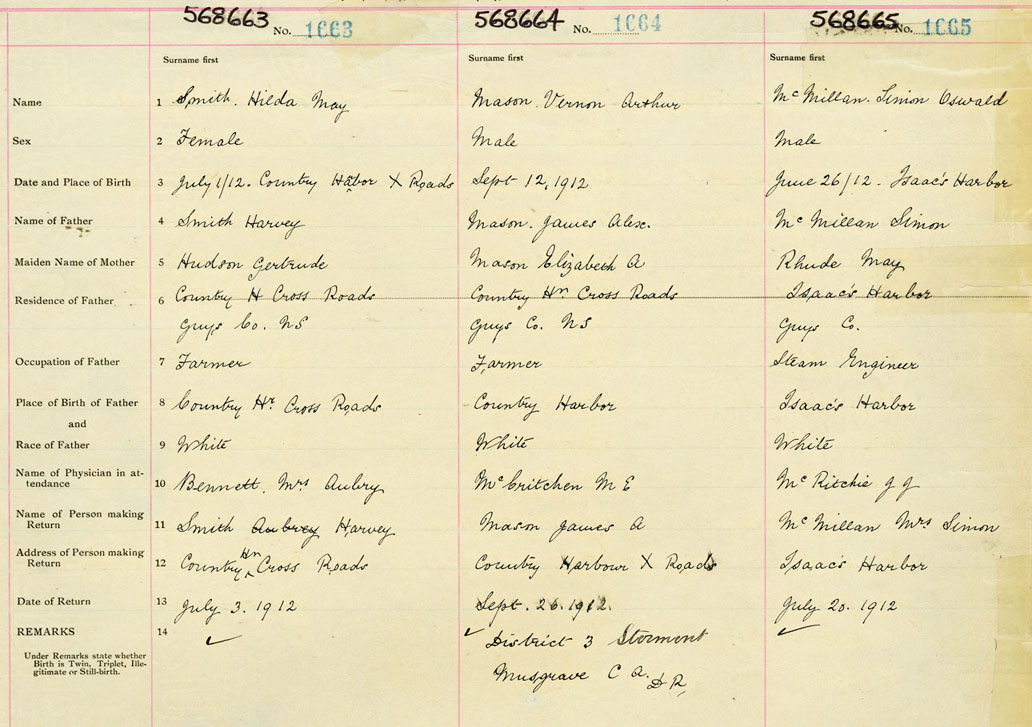 568663 No. 1663 568664 No. 1664 568665 No. 1665
Surname first Surname first Surname first
Name 1 Smith. Hilda May Mason. Vernon Arthur Mc Millan. Simon Oswald
Sex 2 Female Male Male
Date and Place of Birth 3 July 1/12. Country Habor X Roads Sept 12, 1912 June 26/12 - Isaac's Harbor
Name of Father 4 Smith Harvey Mason. James Alex. Mc Millan Simon
Maiden Name of Mother 5 Hudson Gertrude Mason Elizabeth A Rhude May
Residence of Father 6 Country H Cross Roads Country Hr Cross Roads Isaac's Harbor
Guys Co. NS Guys Co. NS Guys Co.
Occupation of Father 7 Farmer Farmer Steam Engineer
Place of Birth of Father 8 Country Hr Cross Roads Country Harbor Isaac's Harbor
and
Race of Father 9 White White White
Name of Physician in at-
tendance 10 Bennett, Mrs Aubry McCritchen M E McRitchie J J
Name of Person making
Return 11 Smith Aubrey Harvey Mason James A Mc Millan Mrs Simon
Address of Person making
Return 12 Country Hr Cross Roads Country Harbour X Roads Isaac's Harbor
Date of Return 13 July 3. 1912 Sept. 26. 1912. July 20. 1912
REMARKS 14 ✓ ✓ District 3 Stormont ✓
Under Remarks state whether
Birth is Twin, Triplet, Ille-
gitimate or Still-birth.
Musgrave C A. D R,